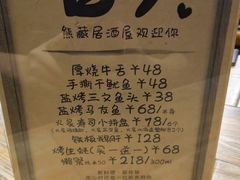 熊藏居酒屋欢迎你
厚烧牛舌￥48
手撕干鱿鱼￥48
盐烤三文鱼头￥38
盐烤马友鱼￥68/条
火炙寿司小拼盘￥78/6个
铁板鹅肝￥128
烤生蚝(买一送一)￥68
獭祭50￥218/300ml